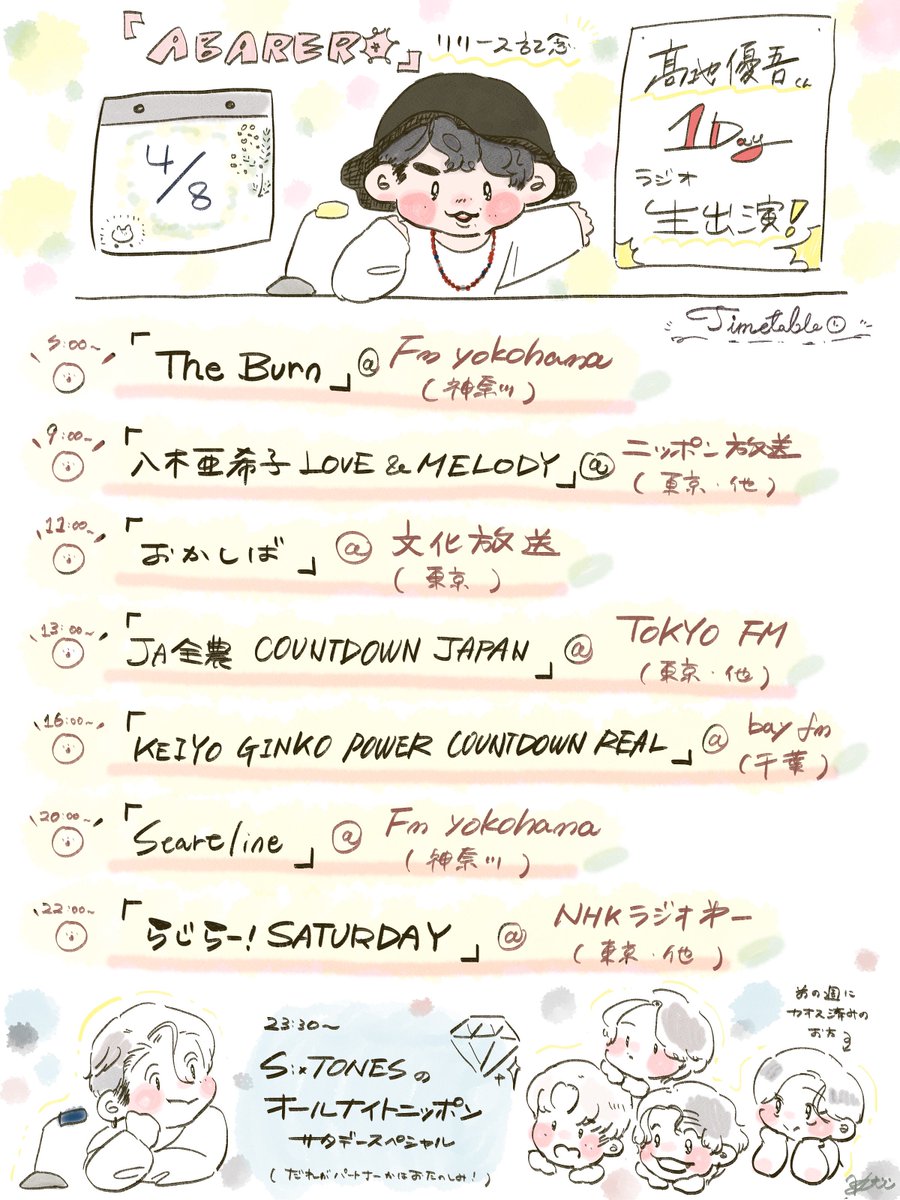 「ABARERO」リリース記念
4/8
髙地優吾くん
1Day
ラジオ
生出演!
Timetable
5:00~
「The Burn」@Fm yokohama
(神奈川)
9:00~
「八木亜希子 LOVE & MELODY」@ニッポン放送
(東京・他)
11:00~
「おかしば」@文化放送
(東京)
13:00~
「JA全農 COUNTDOWN JAPAN」@TOKYO FM
(東京・他)
16:00~
「KEIYO GINKO POWER COUNTDOWN REAL」@bay fm
(千葉)
20:00~
「Startline」@Fm yokohama
(神奈川)
22:00~
「らじらー! SATURDAY」@NHKラジオ第一
(東京・他)
23:30~
SixTONESの
オールナイトニッポン
サタデースペシャル
(だれがパートナーかはおたのしみ!)
前の週に
カオス済みの
お方